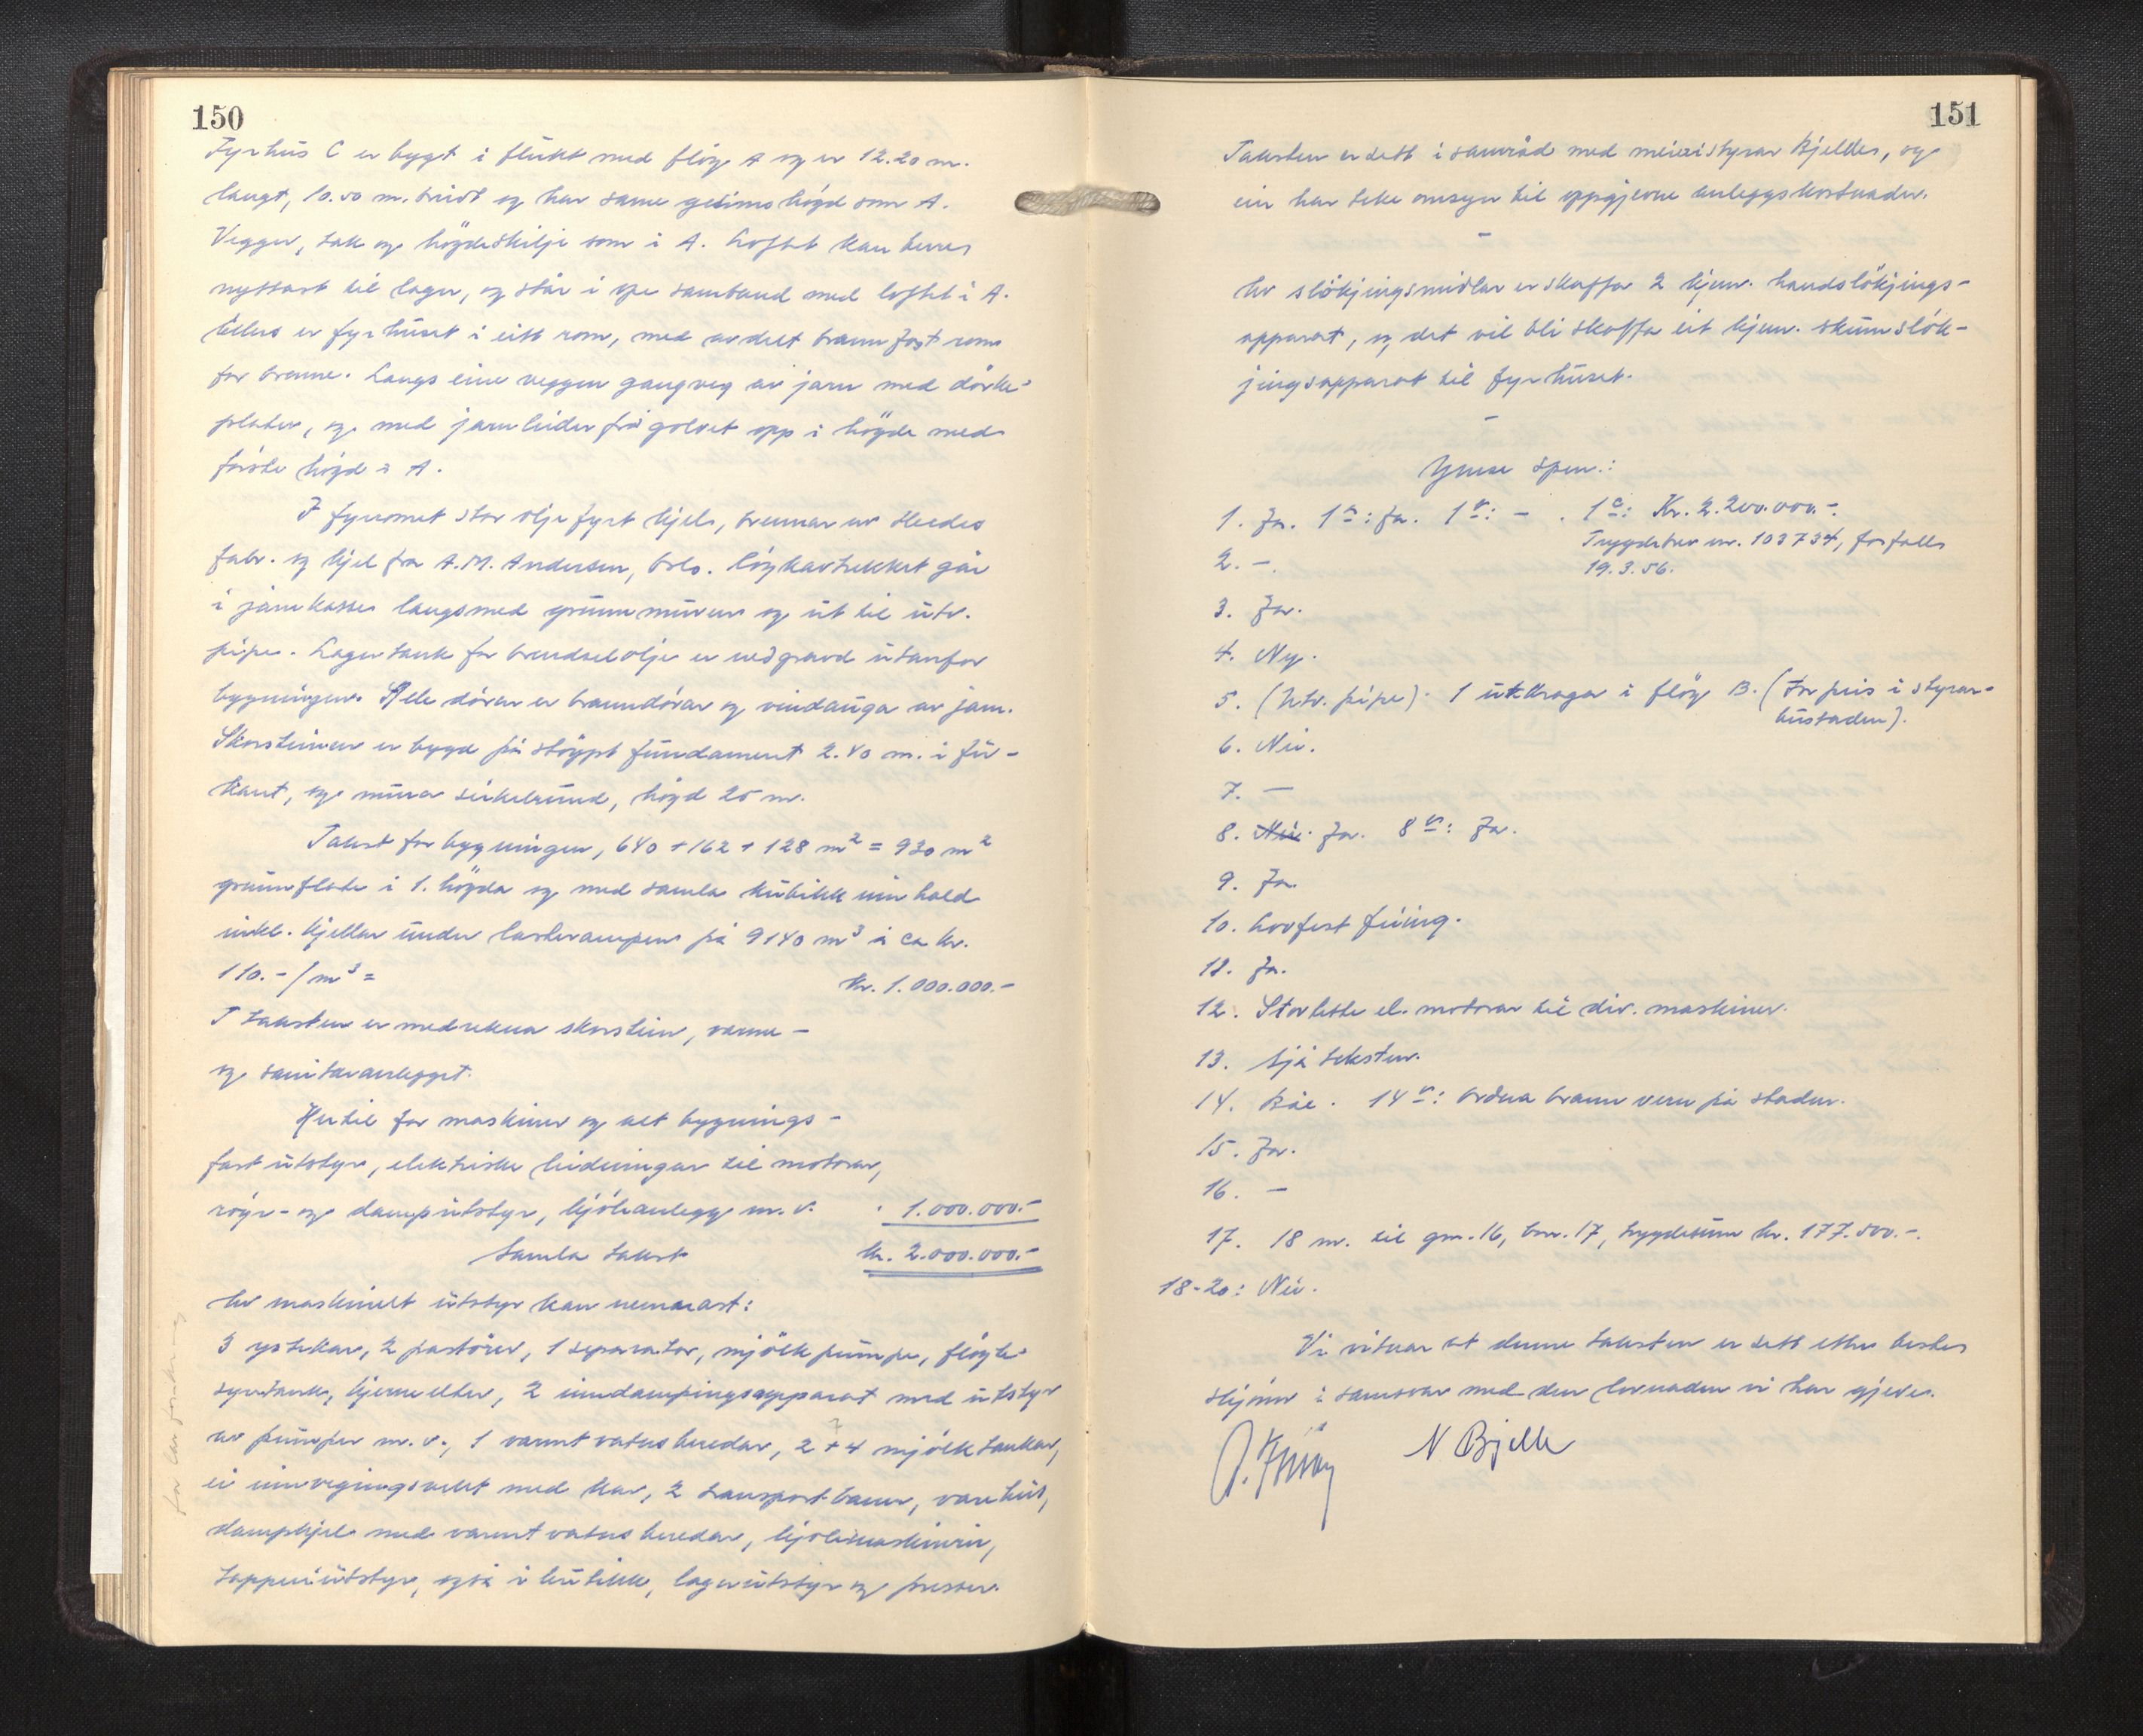 150
Fyrhus C er bygt i flukt med flöy A og er 12.20 m.
langt, 10.50 m. breidt og har same gesimshögd som A.
Vegger, tak og högdeskilje som i A. Loftet kan berre
nyttast til lager, og står i ope samband med loftet i A.
Elles er fyrhuset i eitt rom, med avdelt brannfast rom
for brenne. Langs eine veggen gangveg av jarn med dörke-
plater, og med jarnleider frå golvet opp i högde med
förste högd i A.
I fyrromet står oljefyrt kjel, brennar av
fabr. og kjel fra A.M. Andersen, Oslo. Röykavtrekket går
i jarnkasse langsmed grunnmuren og ut til utv.
pipe. Lagertank for brendselolje er nedgravd utanfor
bygningen. Alle dörer er branndörar og vindauga av jarn.
Skorsteinen er bygd på stöypt fundament 2.40 m. i fir-
kant, og mura sirkelrund, högd 25 m.
Takst for bygningen, 640 + 162 + 128 m² = 930 m²
grunnflate i 1. högda og med samla kubikk innhald
inkl. kjellar under lasterampen på 9140 m³ à ca kr.
110.-/m³ = kr. 1.000.000.-
I taksten er medrekna skorstein, varme-
og sanitæranlegget.
Hertil for maskiner og alt bygnings-
fast utstyr, elektriske leidningar til motorar,
röyr- og damputstyr, kjöleanlegg m.v. " 1.000.000.-
Samla takst kr. 2.000.000.-
Av maskinelt utstyr kan nemnast:
3 ystekar, 2 pastörer, 1 separator, mjölkpumpe, flöyte-
syretank, kjerneelter, 2 inndampingsapparat med utstyr
av pumper m.v., 1 varmtvatnsberedar, 2 + 4 mjölketankar,
ei innvegingsvekt med kar, 2 transportbaner, varehus,
dampkjel med varmtvatnsberedar, kjölemaskineri,
tapperiutstyr, også i butikk, lagerutstyr og presser.
151
Taksten er sett i samråd med meieristyrar Bjelle, og
ein har teke omsyn til oppgjevne anleggskostnader.
-
Av slökjingsmidlar er skaffa 2 kjem. handslökjings-
apparat, og det vil bli skaffa eit kjem. skumslök-
jingsapparat til fyrhuset.
-
Ymse spm.:
1. Ja. 1a: Ja. 1b: - . 1c: Kr. 2.200.000.-.
Trygdebrev nr. 103734, forfall
19.3.56.
2. -.
3. Ja.
4. Ny.
5. (Utv. pipe). 1 utkragar i flöy B. (For peis i styrar-
bustaden).
6. Nei.
7. -
8. Nei. Ja. 8b: Ja.
9. Ja.
10. Lovfest feiing.
11. Ja.
12. Stortette el. motorar til div. maskiner.
13. Sjå teksten.
14. Båe. 14b: Ordna brannvern på staden.
15. Ja.
16. -
17. 18 m. til gnr. 16, bnr. 17, trygdesum kr. 177.500.-.
18-20: Nei.
Vi vitnar at denne taksten er sett etter beste
skjönn i samsvar med den lovnaden vi har gjeve.
N Bjelle